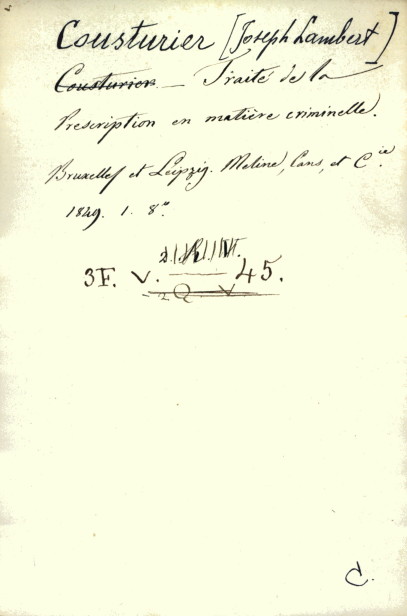 Cousturier [Joseph Lambert]
Cousturier. — Traité de la
Prescription en matière criminelle.
Bruxelles et Leipzig. Meline, Cans, et Cie.
1849. 1. 8°.
3F. V. 45.
2 Q V
C.